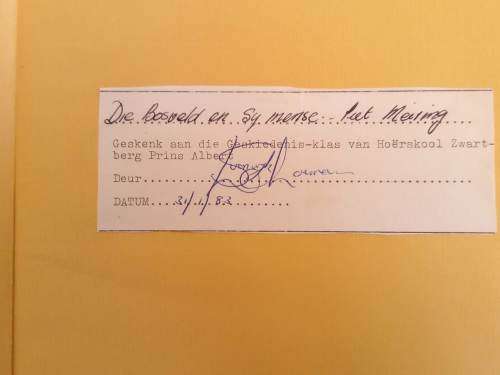 Die Bosveld en Sy mense - Piet Meiring
Geskenk aan die Geskiedenis-klas van Hoërskool Zwart-
berg Prins Albert
Deur
DATUM....31/1/83...........